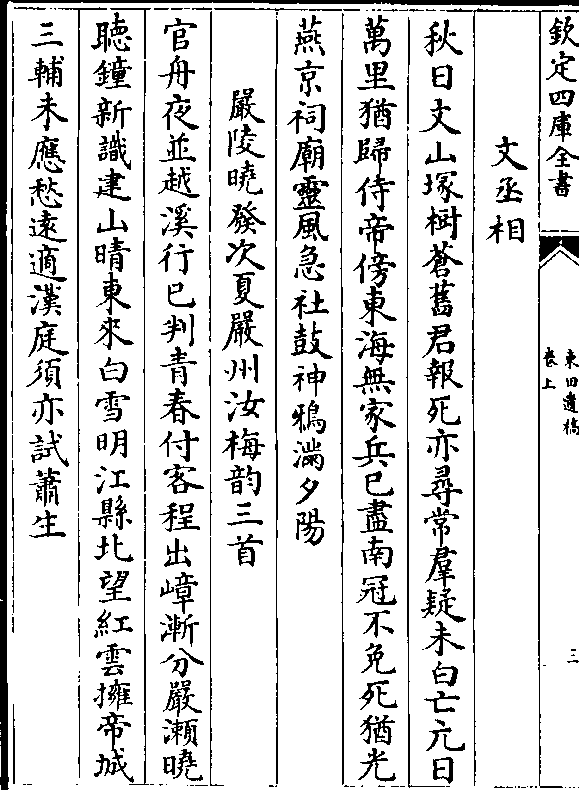 欽定四庫全書
東田遺稿
卷上
三
文丞相
秋日文山塚樹蒼舊君報死亦尋常羣疑未白亡元日
萬里猶歸侍帝傍東海無家兵已盡南冠不免死猶光
燕京祠廟靈風急社鼓神鴉滿夕陽
嚴陵曉發次夏嚴州汝梅韵三首
官舟夜並越溪行已判青春付客程出嶂漸分嚴瀬曉
聽鐘新識建山晴東來白雪明江縣北望紅雲擁帝城
三輔未應愁遠適漢庭須亦試蕭生